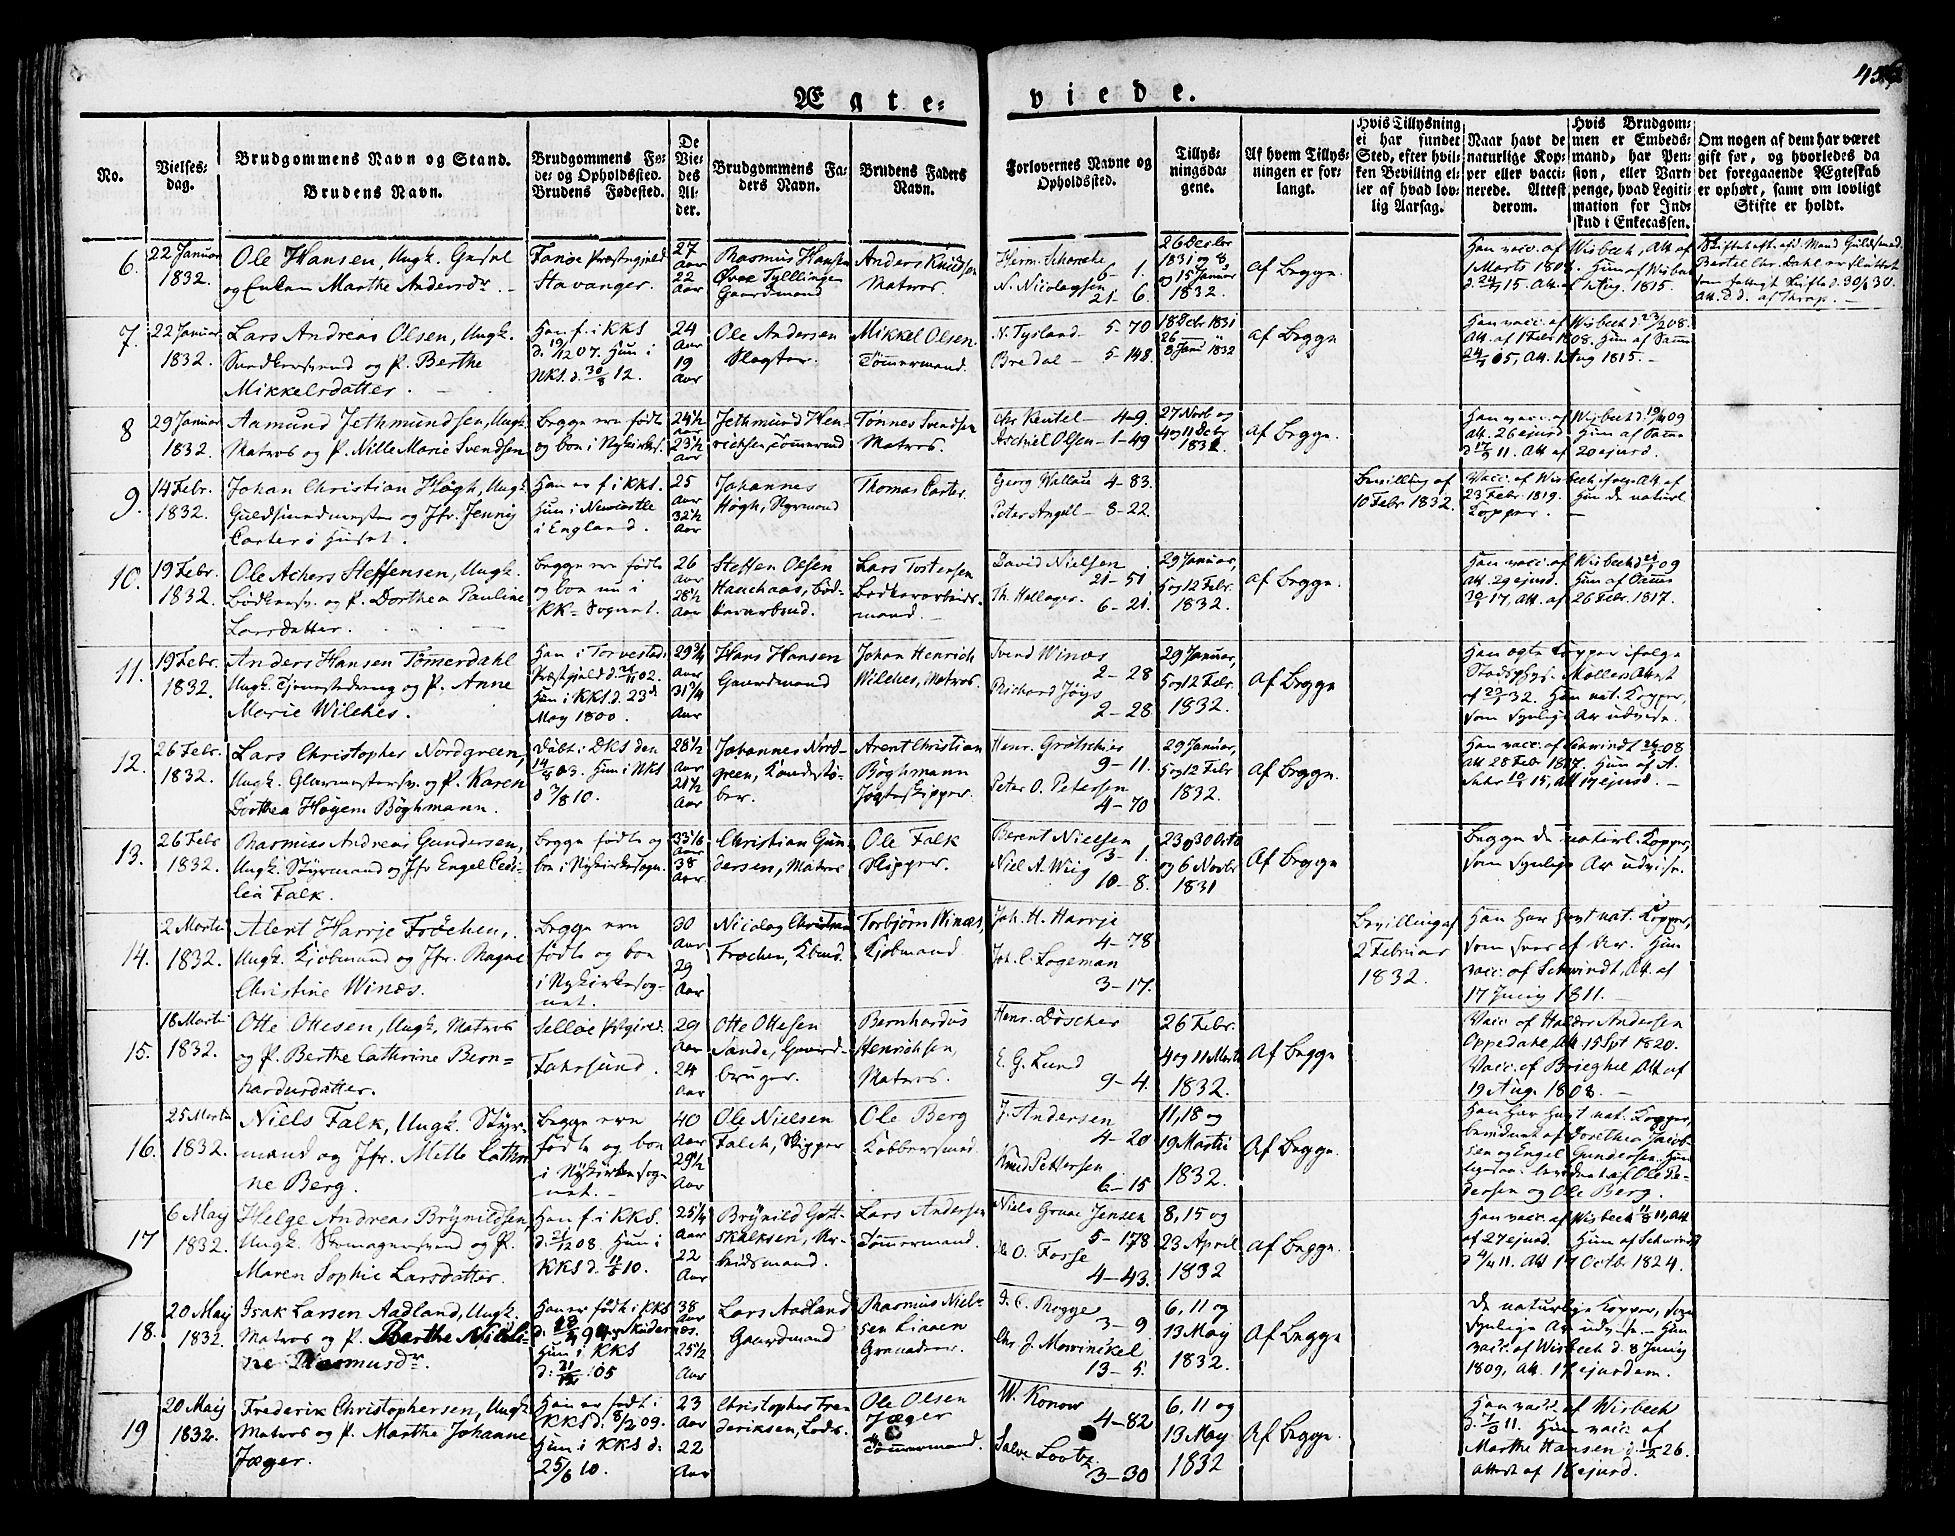 456
Ægte=
viede.
No.
Vielses=
dag.
Brudgommens Navn og Stand.
Brudens Navn.
Brudgommens Fø=
de= og Opholdssted.
Brudens Fødested.
De
Vie=
des
Al=
der.
Brudgommens Fa=
ders Navn.
Brudens Faders
Navn.
Forlovernes Navne og
Opholdssted.
Tillys=
ningsda=
gene.
Af hvem Tillys=
ningen er for=
langt.
Hvis Tillysning
ei har fundet
Sted, efter hvil=
ken Bevilling el=
ler af hvad lov=
lig Aarsag.
Naar havt de
naturlige Kop=
per eller vacci=
nerede. Attest
derom.
Hvis Brudgom=
men er Embeds=
mand, har Pen=
sion, eller Vart=
penge, hvad Legiti=
mation for Ind=
skud i Enkecassen.
Om nogen af dem har været
gift før, og hvorledes da
det foregaaende Ægteskab
er ophørt, samt om lovligt
Skifte er holdt.
6.
22 Januar
1832.
Ole Hansen, Ungk.
og Enken Marthe Andersdr
Fanøe Præstegjeld
Stavanger.
27
Aar
22
Aar
Rasmus Hansen
Øvre Tylllingen
Gaardmand
Anders Knudsen
Matros.
Herm. Schrøder
6 - 1.
N. Nicolaysen
21 - 6.
26 Decbr
1831 og 8
og 15 Januar
1832.
Af Begge.
Han vacc. af Wisbech, Att. af
1 Marts 1808. Hun af Wisbech
15. Att. af 1 Aug. 1815.
7.
22 Januar
1832.
Lars Andreas Olsen, Ungk.
og P. Berthe
Mikkelsdatter.
Han f. i KKS
d. 19/12 07. Hun i
NKS. d. 30/8 12.
24
Aar
19
Aar
Ole Andersen
Slagter.
Mikkel Olsen
Tømmermand.
N. Tysland - 5-70
Bredal - 5-148.
18 Decbr 1831
26
8 Janr 1832
Af Begge.
Han vacc. af Wisbech d. 23/2 08.
Att. af 1 Febr 1808. Hun af Samme
15, Att. 1 Aug 1815.
8
29 Januar
1832.
Aamund Jethmundsen, Ungk.
Matros og P. Nille Marie Svendsen
Begge ere fødte
og boe i Nykirkes.
24½
Aar
23½
Aar
Jethmund Hen-
richsen, Tømmermd
Tønnes Svendsen
Matros.
Chr Keutel - 4-9.
Aschiel Olsen - 1-49
27 Novb og
4 og 11 Decbr
1831.
Af Begge.
Han vacc. af Wisbech d. 19/4 09
Att. 26 ejusd. Hun af Samme
d 17/9 11. Att af 20 ejusd.
9.
14 Febr.
1832.
Johan Christian Høgh, Ungk.
Guldsmedmester og Jfr. Jenny
Carter i Huset.
Han er f. i KKS.
Hun i Newcastle
i England.
25
Aar
32½
Aar
Johannes
Høgh, Styrmand
Thomas Carter.
Georg Wallau 4-83.
Peter Angell - 8-22.
Bevilling af
10 Febr 1832.
Vacc. af Wisbech ifølge Att. af
23 Febr. 1819. Hun de naturl
Kopper.
10.
19 Febr.
1832.
Ole Achers Steffensen, Ungk.
Bødkersv. og P. Dorthea Pauline
Larsdatter.
Begge ere fødte
og boe nu i
KK= Sognet.
26
Aar
28½
Aar
Steffen Olsen
Hauchaas, Bød-
kersvend.
Lars Tostensen
Bødkerarbeids-
mand.
David Nielsen
21-51.
Th. Hallager.
6-21.
29 Januar,
5 og 12 Febr.
1832.
Af Begge.
Han vacc. af Wisbech 09
Att. 29 ejusd. Hun af Samme
17, Att. af 26 Febr. 1817.
11.
19 Febr.
1832.
Anders Hansen Tømmerdahl
Ungk. Tjenestedreng og P. Anne
Marie Wilches.
Han i Torvestads
Præstgjeld d. 02.
Hun i KKS d. 23d
May 1800.
29¾
Aar
31¾
Aar
Hans Hansen
Gaardmand
Johan Henrich
Wilches, Matros.
Svend Winæs
2-28
Richard Jøys
2-28
29 Januar,
5 og 12 Febr.
1832.
Af Begge
Han ægte Kopper ifølge
Stadsphys. Møllers Attest
af 32. Hun nat. Kopper,
som synlige Ar udvise.
12.
26 Febr.
1832.
Lars Christopher Nordgreen,
Ungk. Glarmestersv. og P. Karen
Dorthea Hagem Bøghmann.
Døbt i DKS den
14/8 03. Hun i NKS
d 3/8 10.
28½
Aar
21½
Aar
Johannes Nord-
green, Kandestø-
ber.
Arent Christian
Bøghmann
Jægteskipper.
Henr. Grøtschier
9-11.
Peter O. Petersen
4-70
29 Januar,
5 og 12 Febr
1832.
Af Begge.
Han vacc. af Schwindt 08
Att 28 Febr 1817. Hun af
15, Att 17 ejusd.
13.
26 Febr
1832.
Rasmus Andreas Gundersen,
Ungk. Styrmand og Jfr Engel Ceci-
lia Falk.
Begge fødte og
boe i Nykirkesogn.
33 1/6
Aar
38
Aar
Christian Gun
dersen, Matros
Ole Falk
Skipper.
Berent Nielsen
3-1.
Niel A. Wiig
10-8.
23 og 30 Octo
og 6 Novbr
1831
Af Begge.
Begge de naturl. Kopper,
som synlige Ar udvise.
14.
2 Martii
1832.
Alert Harrje Frøchen,
Ungk. Kjøbmand og Jfr. Magne
Christine Winæs.
Begge ere
fødte og boe
i Nykirkesog-
net.
30
Aar
29
Aar
Nicolay Christian
Frochen, Kbmd.
Torbjørn Winæs,
Kjøbmand
Joh. H. Harrje
4-78
Joh. C. Logeman
3-17.
Bevilling af
2 Februar
1832.
Han har havt nat. Kopper,
som sees af Ar. Hun
vacc. af Schwindt, Att. af
17 Juny 1811.
15.
18 Martii
1832.
Otte Ottesen, Ungk, Matros
og P. Berthe Cathrine Bern=
hardusdatter.
Selløe Præstgjeld.
Farsund.
29
Aar
24
Aar
Otte Ottesen
Sande, Gaard-
bruger.
Bernhardus
Henrichsen,
Matros.
Henr. Døscher
E. G. Lund
9-4.
26 Febr.
4 og 11 Martii
1832.
Af Begge
Vacc. af Haldor Andersen
Oppedahl, Att. 15 Spt 1820.
Vacc. af Brieghel Att. af
19 Aug. 1808.
16.
25 Martii
1832.
Niels Falk, Ungk. Styr-
mand og Jfr. Mette Cathri
ne Berg.
Begge ere
fødte og boe
i Nykirkesog-
net.
40
Aar
29½
Aar
Ole Nielsen
Falch, Skipper
Ole Berg
Kobbersmed
J. Andersen
4-20
Knud Pettersen
6-15
11, 18 og
19 Martii
1832.
Af Begge.
Han har havt nat. Kopper,
bevidnet af Dorethea Jacob-
sen og Engel Gundersen. Hun
ligesaa: bevidnet af Ole Pe-
dersen og Ole Berg.
17
6 May
1832.
Helge Andreas Brynildsen,
Ungk. Skomagersvend og P.
Maren Sophie Larsdatter.
Han f. i KKS.
d. 08. Hun i
KKS d. 10.
25¼
Aar
22
Aar
Brynild Gott-
skalksen, Ar-
beidsmand.
Lars Andersen
Tømmermand.
Niels Graae Jensen
5-178
O. Fosse
4-43.
8, 15 og
23 April
1832
Af Begge.
Han vacc. af Wisbech 11/8 11, Att
af 27 ejusd. Hun af Schwindt
d 4/4 11. Att 17 Octbr 1824.
18.
20 May
1832.
Isak Larsen Aadland, Ungk.
Matros og P. Berthe Nicoli-
ne Rasmusdr.
Han er født i KKS
94
Hun i KKS
d: 21/12 05
38
Aar
25½
Aar
Lars Aadland
Gaardmand
Rasmus Niel-
sen Liaaen
Granadeer.
J. C. Rogge
3-9
Chr J. Mowinckel
13-5.
6, 11 og
13 May
1832.
Af Begge
De naturlige Kopper, som
synlige Ar udvise. Hun
vacc. af Wisbech d. 8 Juny
1809, Att. 17 ejusdem.
19
20 May
1832.
Frederik Christophersen, Ungk.
Matros og P. Marthe Johanne
Jæger.
Han er født i
KKS d. 8/2 09.
Hun i KKS d:
25/6 10.
23
Aar
22
Aar
Christopher Fre
deriksen, Lods.
Ole Olsen
Jæger
Tømmermand.
W. Konow
4-82
Salve Lootz
3-30
6, 11 og
13 May
1832
Af Begge.
Han vacc. af Wisbech
d. 11. Hun vacc af
Marthe Hansen d. 26.
Attest af 18 ejusd.